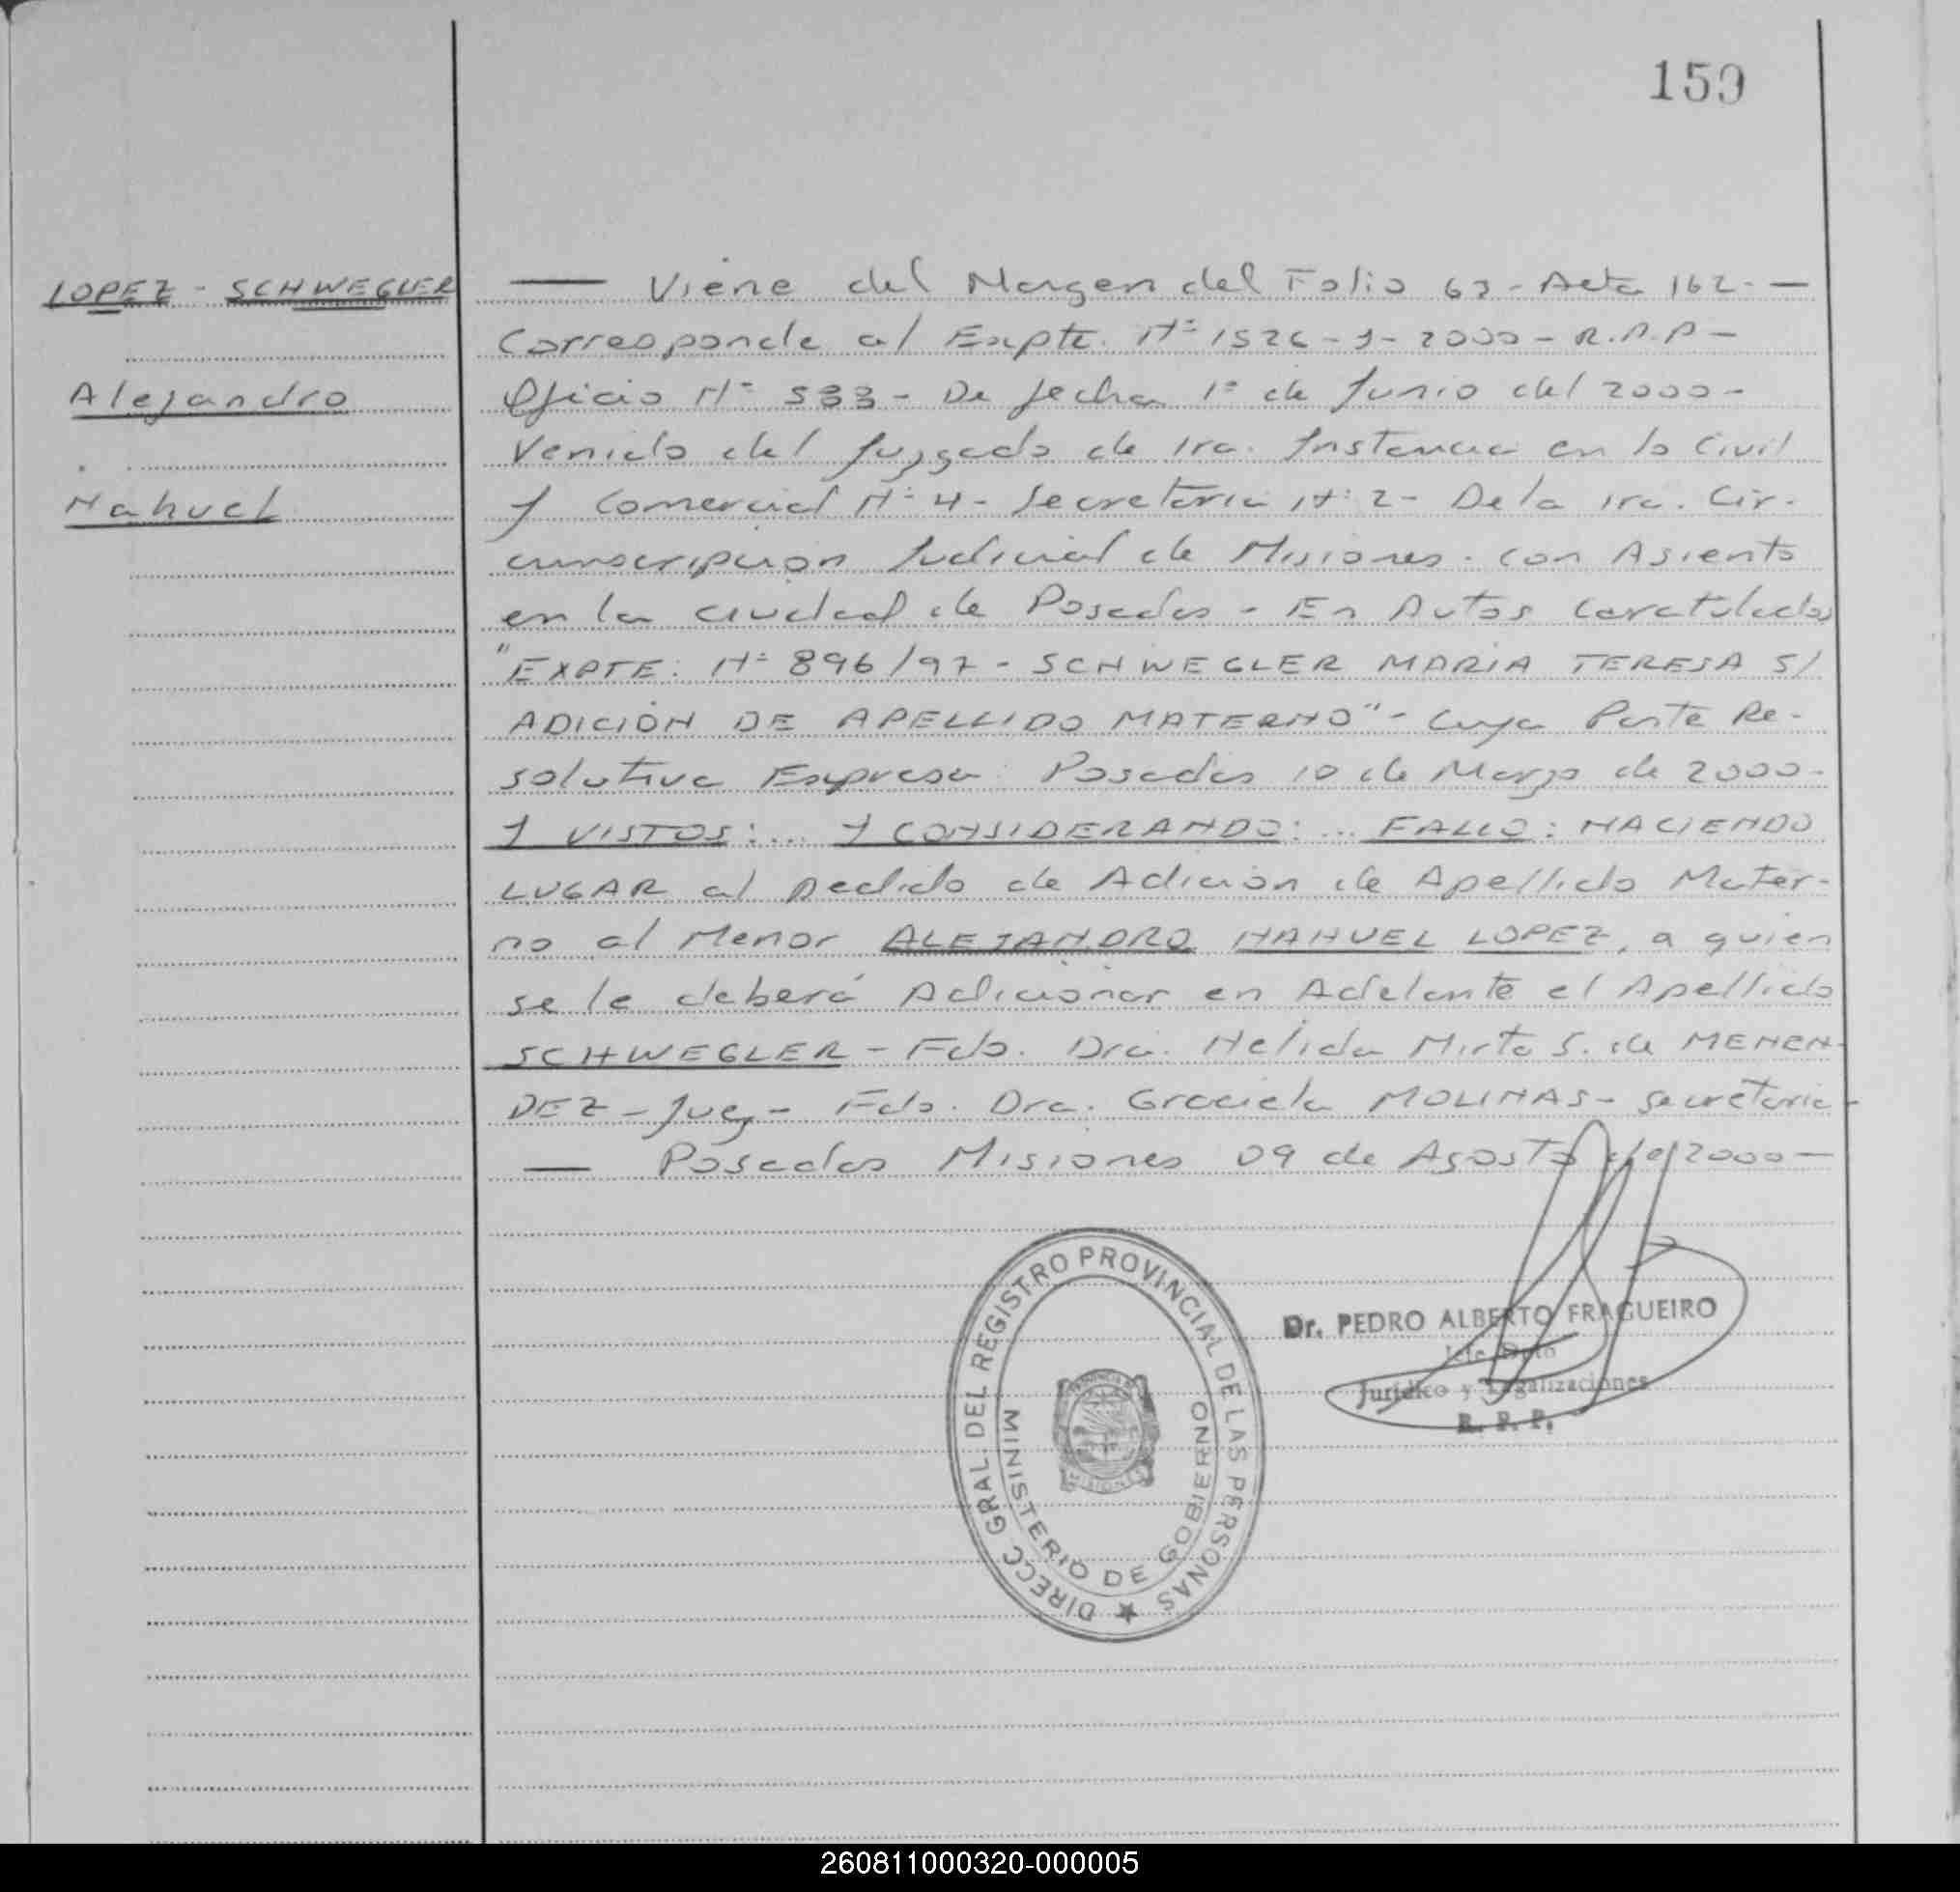 159
LOPEZ - SCHWEGLER
Alejandro
Nahuel
— Viene del Margen del Folio 63 - Acta 162. —
Corresponde al Expte. Nº 1526 - Y - 2000 - R.P.P -
Oficio Nº 533 - De fecha 1º de Junio del 2000 -
Venido del Juzgado de 1ra. Instancia en lo Civil
y Comercial Nº 4 - Secretaria Nº 2 - De la 1ra. Cir-
cunscripción Judicial de Misiones - con Asiento
en la ciudad de Posadas - En Autos Caratulados
"EXPTE: Nº 896/97 - SCHWEGLER MARIA TERESA S/
ADICIÓN DE APELLIDO MATERNO" - Cuya Parte Re-
solutiva Expresa: Posadas 10 de Marzo de 2000 -
Y VISTOS:... Y CONSIDERANDO:... FALLO: HACIENDO
LUGAR al pedido de Adición de Apellido Mater-
no al Menor ALEJANDRO NAHUEL LOPEZ, a quien
se le deberá Adicionar en Adelante el Apellido
SCHWEGLER - Fdo. Dra. Nelida Mirta S. de MENEN-
DEZ - Juez - Fdo. Dra. Graciela MOLINAS - Secretaria -
— Posadas Misiones 09 de Agosto del 2000 —
DIRECC GRAL. DEL REGISTRO PROVINCIAL DE LAS PERSONAS
MINISTERIO DE GOBIERNO
MISIONES
Dr. PEDRO ALBERTO FRAGUEIRO
Jefe Dpto
Jurídico y Legalizaciones
R. P. P.
260811000320-000005